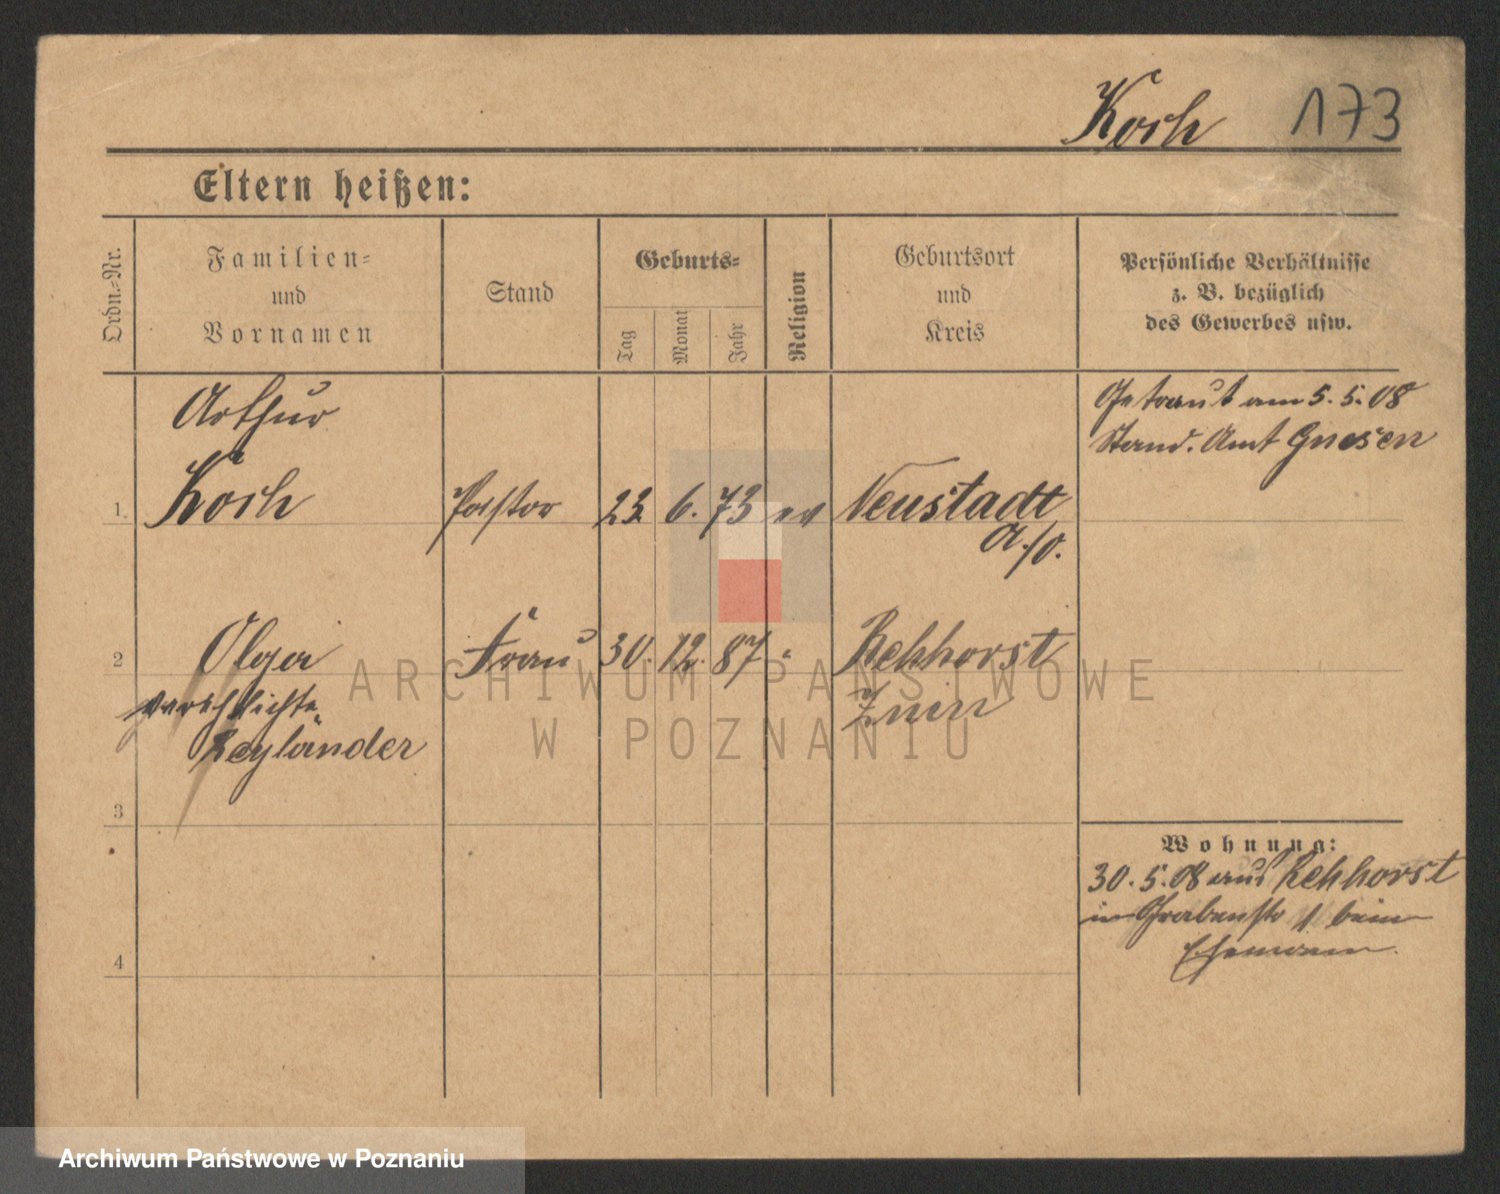 Koch 173
Eltern heißen:
Ordn.-Nr.
Familien-
und
Vornamen
Stand
Geburts-
Tag
Monat
Jahr
Religion
Geburtsort
und
Kreis
Persönliche Verhältnisse
z. B. bezüglich
des Gewerbes usw.
Arthur
1. Koch Pastor 23. 6. 73 ev Neustadt
a./O.
Getraut am 5. 5. 08
Stand. Amt Gnesen
2 Olga Frau 30. 12. 87 " Rehhorst
verehlichte Znin
Leyländer
3
Wohnung:
30. 5. 08 aus Rehhorst
in Grabenstr 1 beim
Ehemann.
4
ARCHIWUM PAŃSTWOWE
W POZNANIU
Archiwum Państwowe w Poznaniu